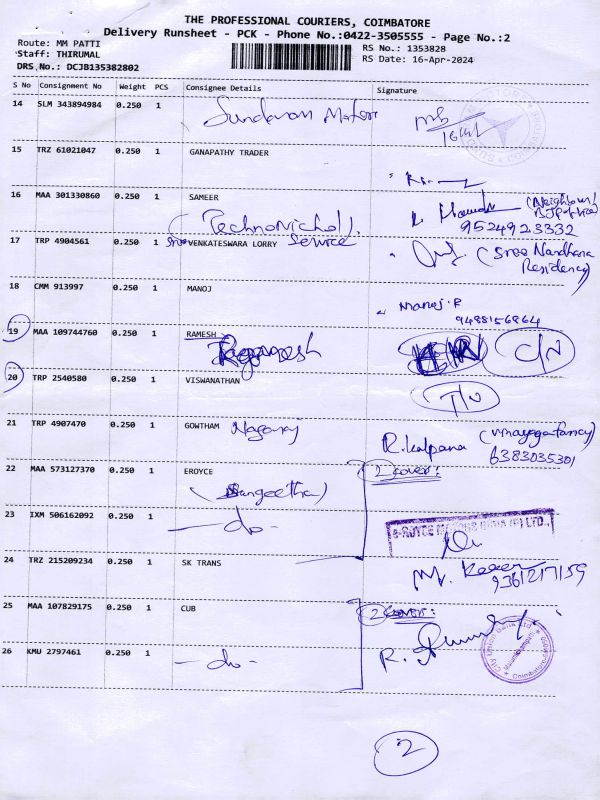 THE PROFESSIONAL COURIERS, COIMBATORE
Delivery Runsheet - PCK - Phone No.:0422-3505555 - Page No.:2
Route: MM PATTI
RS No.: 1353828
Staff: THIRUMAL
RS Date: 16-Apr-2024
DRS No.: DCJB135382802
S No Consignment No Weight PCS Consignee Details Signature
14 SLM 343894984 0.250 1 Sundaram Motors
15 TRZ 61021047 0.250 1 GANAPATHY TRADER
16 MAA 301330860 0.250 1 SAMEER (Neighbour)
(TechnoNicholl). 9524923332
17 TRP 4904561 0.250 1 Sree VENKATESWARA LORRY Service (Sree Nandhana
Residency)
18 CMM 913997 0.250 1 MANOJ Manoj.P
9488156864
19 MAA 109744760 0.250 1 RAMESH C/N
20 TRP 2540580 0.250 1 VISWANATHAN T/N
21 TRP 4907470 0.250 1 GOWTHAM Nagaraj R.Kalpana (Vinayagafancy)
6383035301
22 MAA 573127370 0.250 1 EROYCE 2 cover:
(Sangeetha)
23 IXM 506162092 0.250 1 -do-
24 TRZ 215209234 0.250 1 SK TRANS
9361217159
25 MAA 107829175 0.250 1 CUB 2 cover:
City Union Bank Ltd
Coimbatore
26 KMU 2797461 0.250 1 -do- R.
2